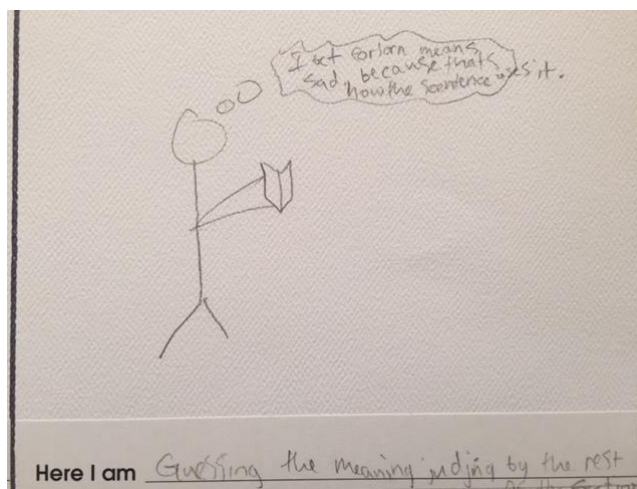 I bet forlorn means
sad, because thats
how the scentence uses it.
Here I am Guessing the meaning judjing by the rest
of the